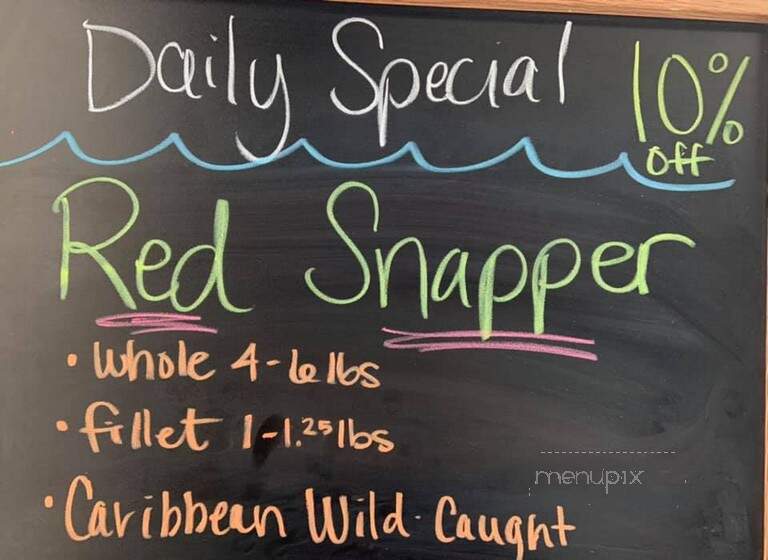 Daily Special
10%
off
Red Snapper
• Whole 4-6 lbs
• fillet 1-1.25 lbs
• Caribbean Wild-Caught
menupix